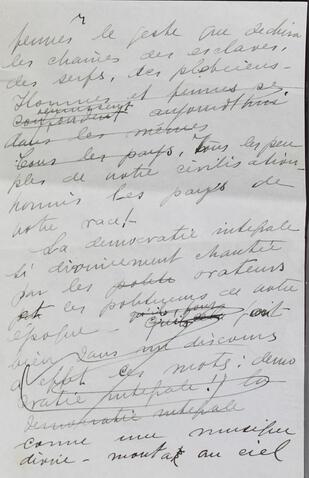 7
femmes le geste que déchira
les chaînes des esclaves,
des serfs, des plébéiens.
Hommes et femmes se
confondent aujourd'hui
dans les mêmes
Tous les pays, Tous les peu
ples de notre civilisation
hormis les pays de
notre race!
La démocratie intégrale
si divinement chantée
par les poètes orateurs
et les politiciens de notre
époque
bien dans discours
ces mots: démo
cratie intégrale!) la
démocratie intégrale
comme une musique
divine - monta au ciel